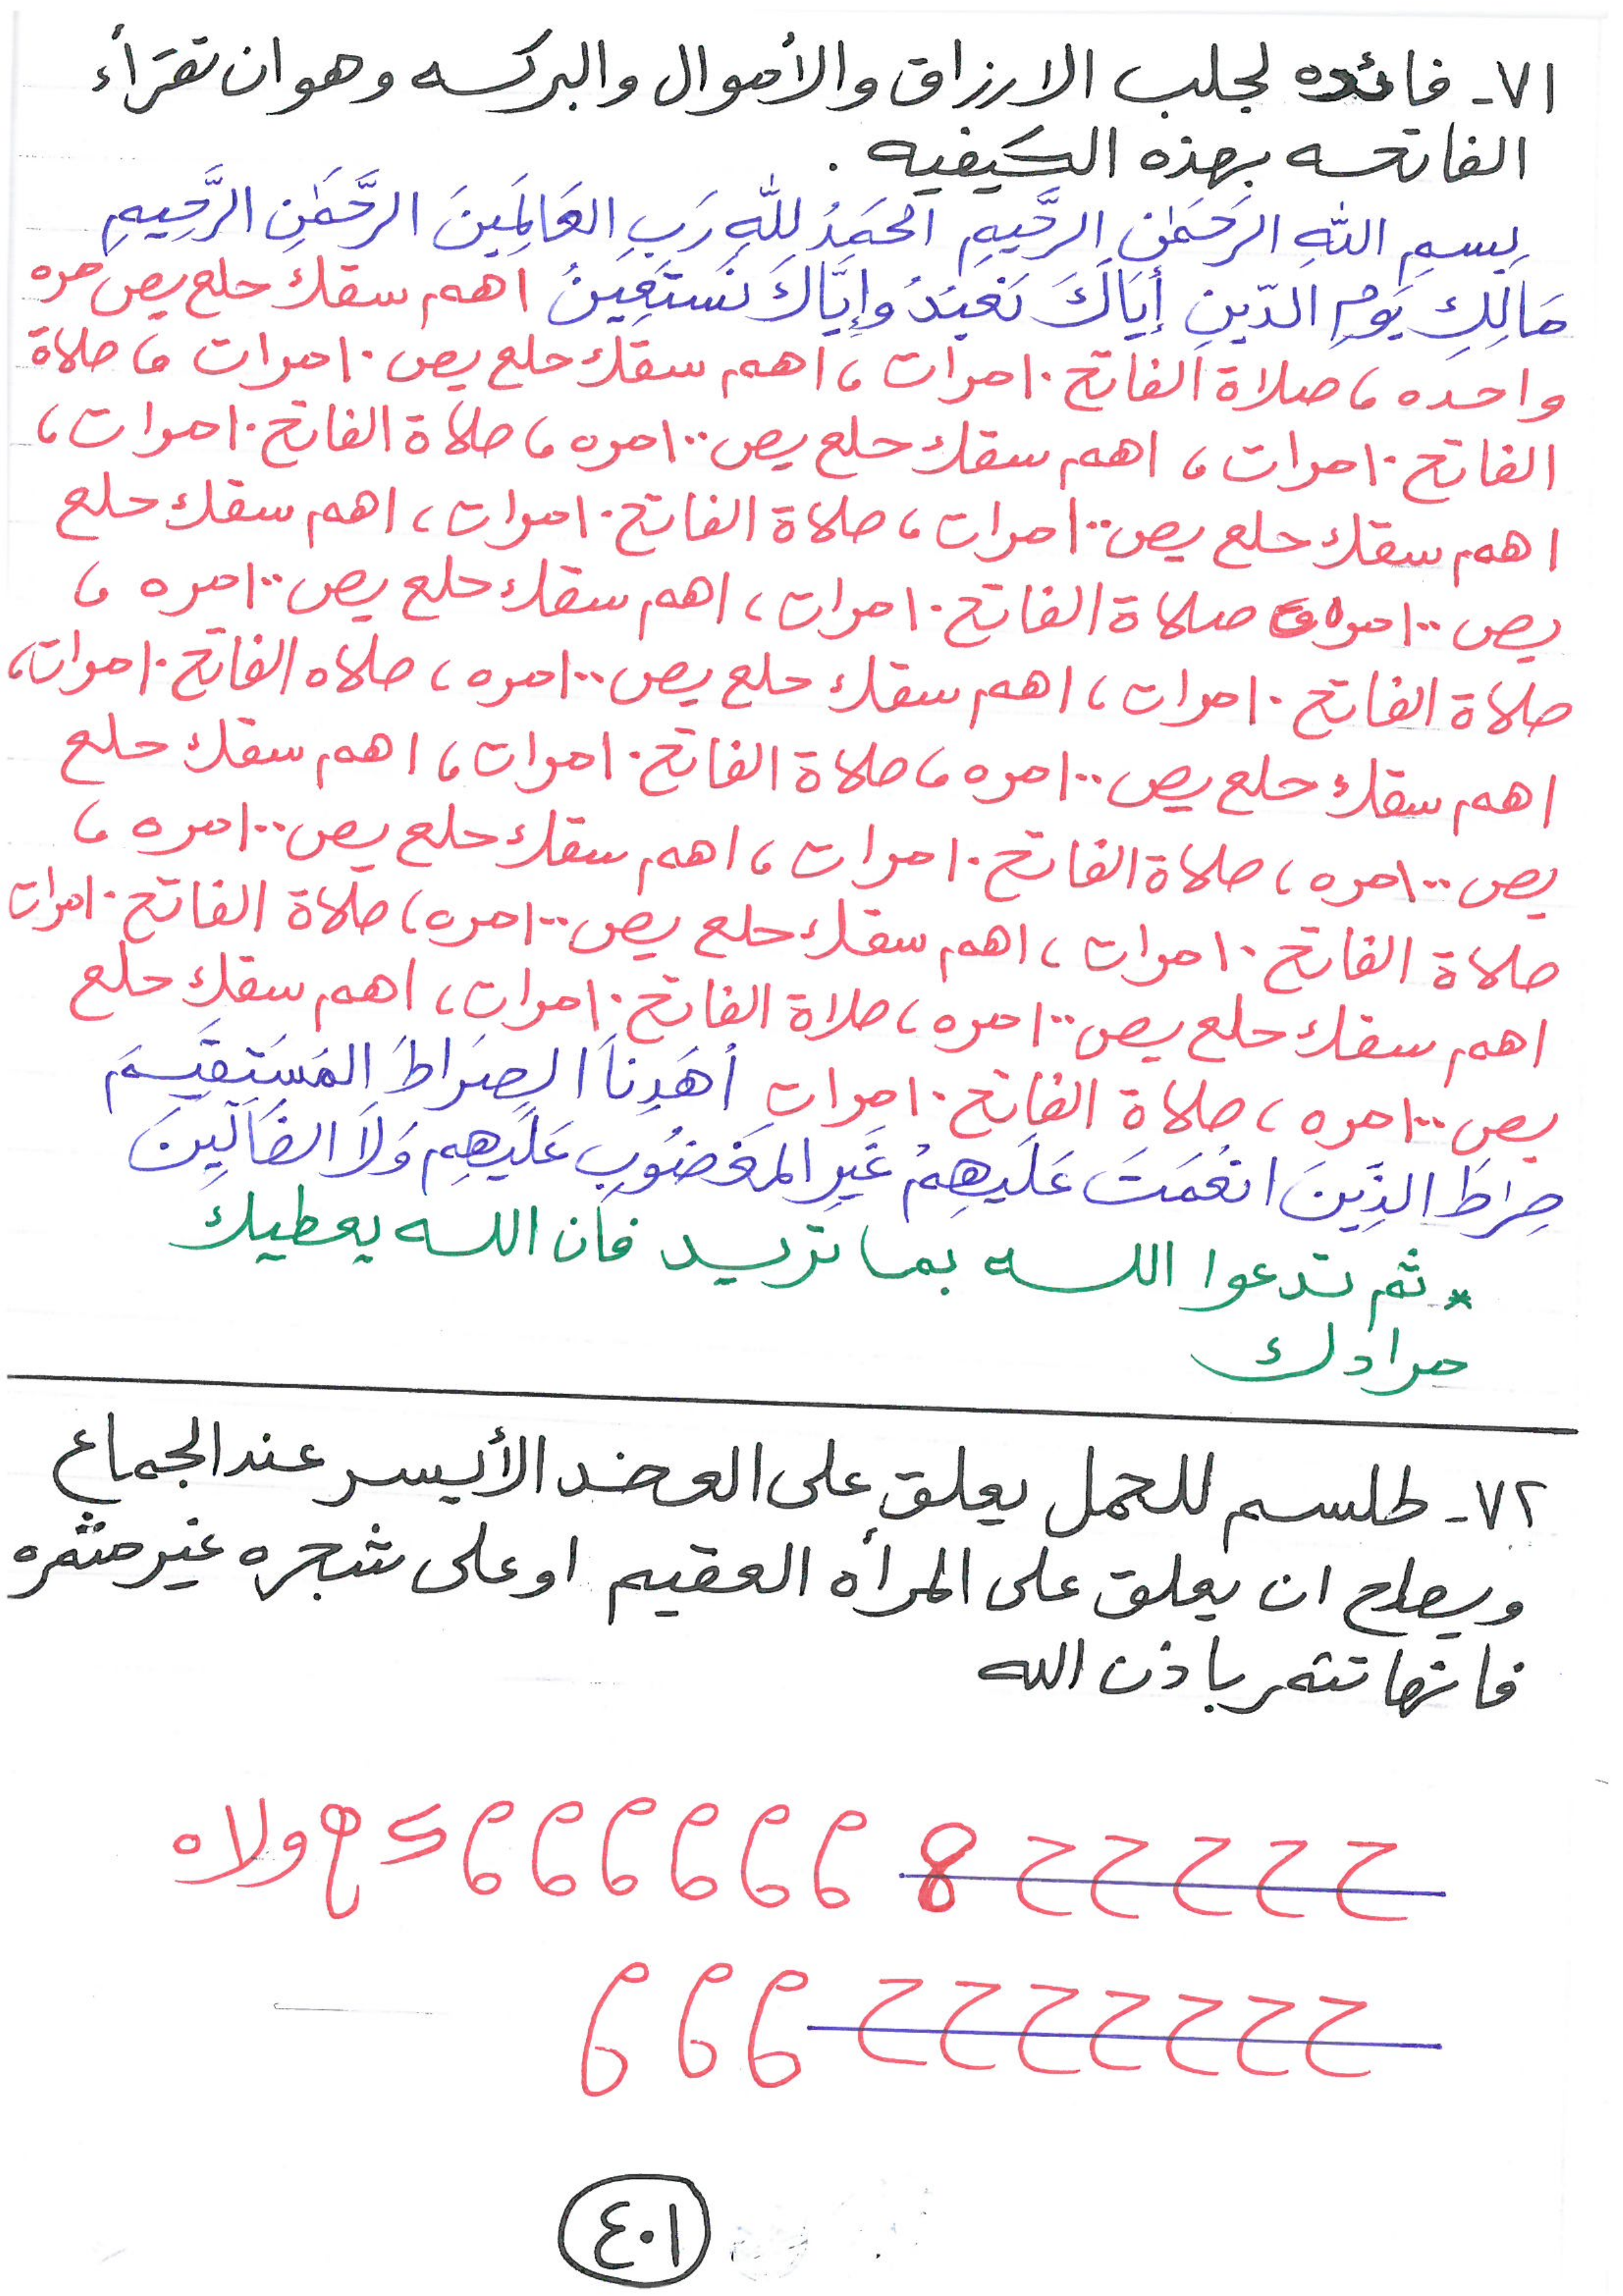 ٧١- فائده لجلب الارزاق والأموال والبركه وهو ان تقرأء
الفاتحه بهذه الكيفيه .
بِسمِ اللهِ الرَحمَٰنِ الرَّحِيمِ الحَمَدُ للّهِ رَبِ العَالَمِينَ الرَّحمَٰنِ الرَّحِيمِ
مَالِكِ يَومِ الدّينِ إِيَاكَ نَعبَدُ وإِيَّاكَ نَستَعِينُ اهم سقك حلع يص مره
واحده ، صلاة الفاتح ١٠ مرات ، اهم سقك حلع يص ١٠ مرات ، صلاة
الفاتح ١٠ مرات ، اهم سقك حلع يص ١٠٠ مره ، صلاة الفاتح ١٠ مرات ،
اهم سقك حلع يص ١٠٠ مرات ، صلاة الفاتح ١٠ مرات ، اهم سقك حلع
يص ١٠٠ مره صلاة الفاتح ١٠ مرات ، اهم سقك حلع يص ١٠٠ مره ،
صلاة الفاتح ١٠ مرات ، اهم سقك حلع يص ١٠٠ مره ، صلاه الفاتح ١٠ مرات ،
اهم سقك حلع يص ١٠٠ مره ، صلاة الفاتح ١٠ مرات ، اهم سقك حلع
يص ١٠٠ مره ، صلاة الفاتح ١٠ مرات ، اهم سقك حلع يص ١٠٠ مره ،
صلاة الفاتح ١٠ مرات ، اهم سقك حلع يص ١٠٠ مره ، صلاة الفاتح ١٠ مرات
اهم سقك حلع يص ١٠٠ مره ، صلاة الفاتح ١٠ مرات ، اهم سقك حلع
يص ١٠٠ مره ، صلاة الفاتح ١٠ مرات أهَدِنَا الصِرَاطَ المَستَقيَمَ
صِرَاطَ الذِّينَ انعُمَتَ عَلَيهِمُ غَيرِ المَغضُوبِ عَلَيهِم وَلَا الضَالّينَ
* ثم تدعوا الله بما تريد فان الله يعطيك
مرادك
٧٢- طلسم للحمل يعلق على العضد الأيسر عند الجماع
ويصلح ان يعلق على المرأه العقيم او على شجره غير مثمره
فانها تثمر باذن الله
ححححح 8 ۹۹۹۹۹۹ ولاه
ححححححح ۹۹۹
٤٠١